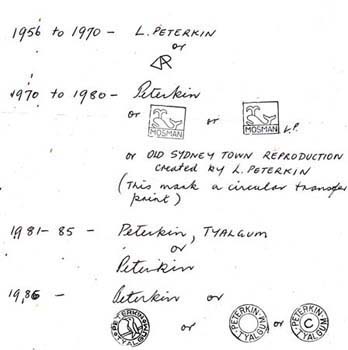 1956 to 1970 - L. PETERKIN
or
1970 to 1980 - Peterkin
or MOSMAN or MOSMAN L.P.
or OLD SYDNEY TOWN REPRODUCTION
created by L. PETERKIN
(This mark a circular transfer
print)
1981-85 - Peterkin, TYALGUM
or
Peterkin
1986 - Peterkin or
PETERKIN TYALGUM or PETERKIN TYALGUM or PETERKIN TYALGUM C